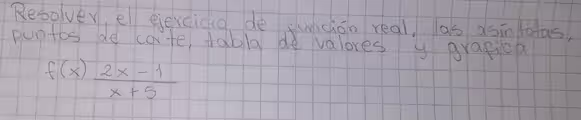 Resolver el ejercicio de función real, las asíntotas,
puntos de corte, tabla de valores y grafica
f(x) 2x - 1
x + 5